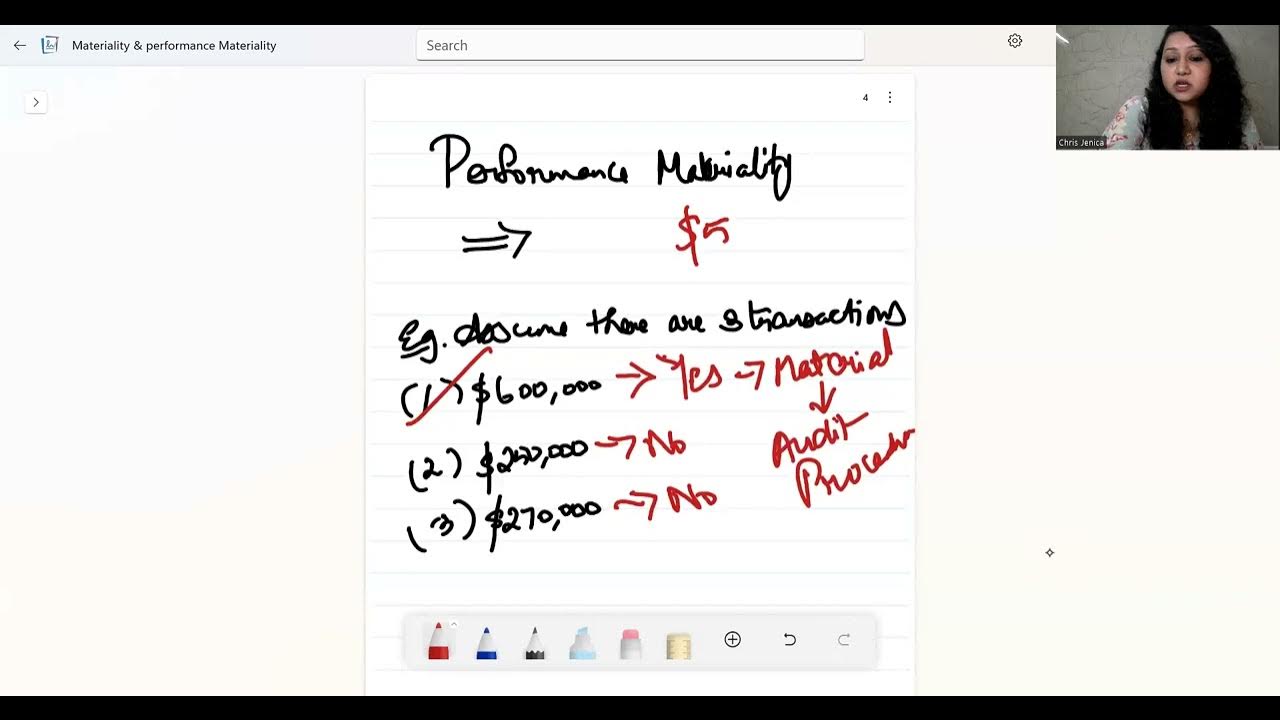 Materiality & performance Materiality
Search
Chris Jenica
4
Performance Materiality
⇒ $5
Eg. Assume there are 3 transactions
(1) $600,000 → Yes → Material
↓
Audit
(2) $250,000 → No
(3) $270,000 → No